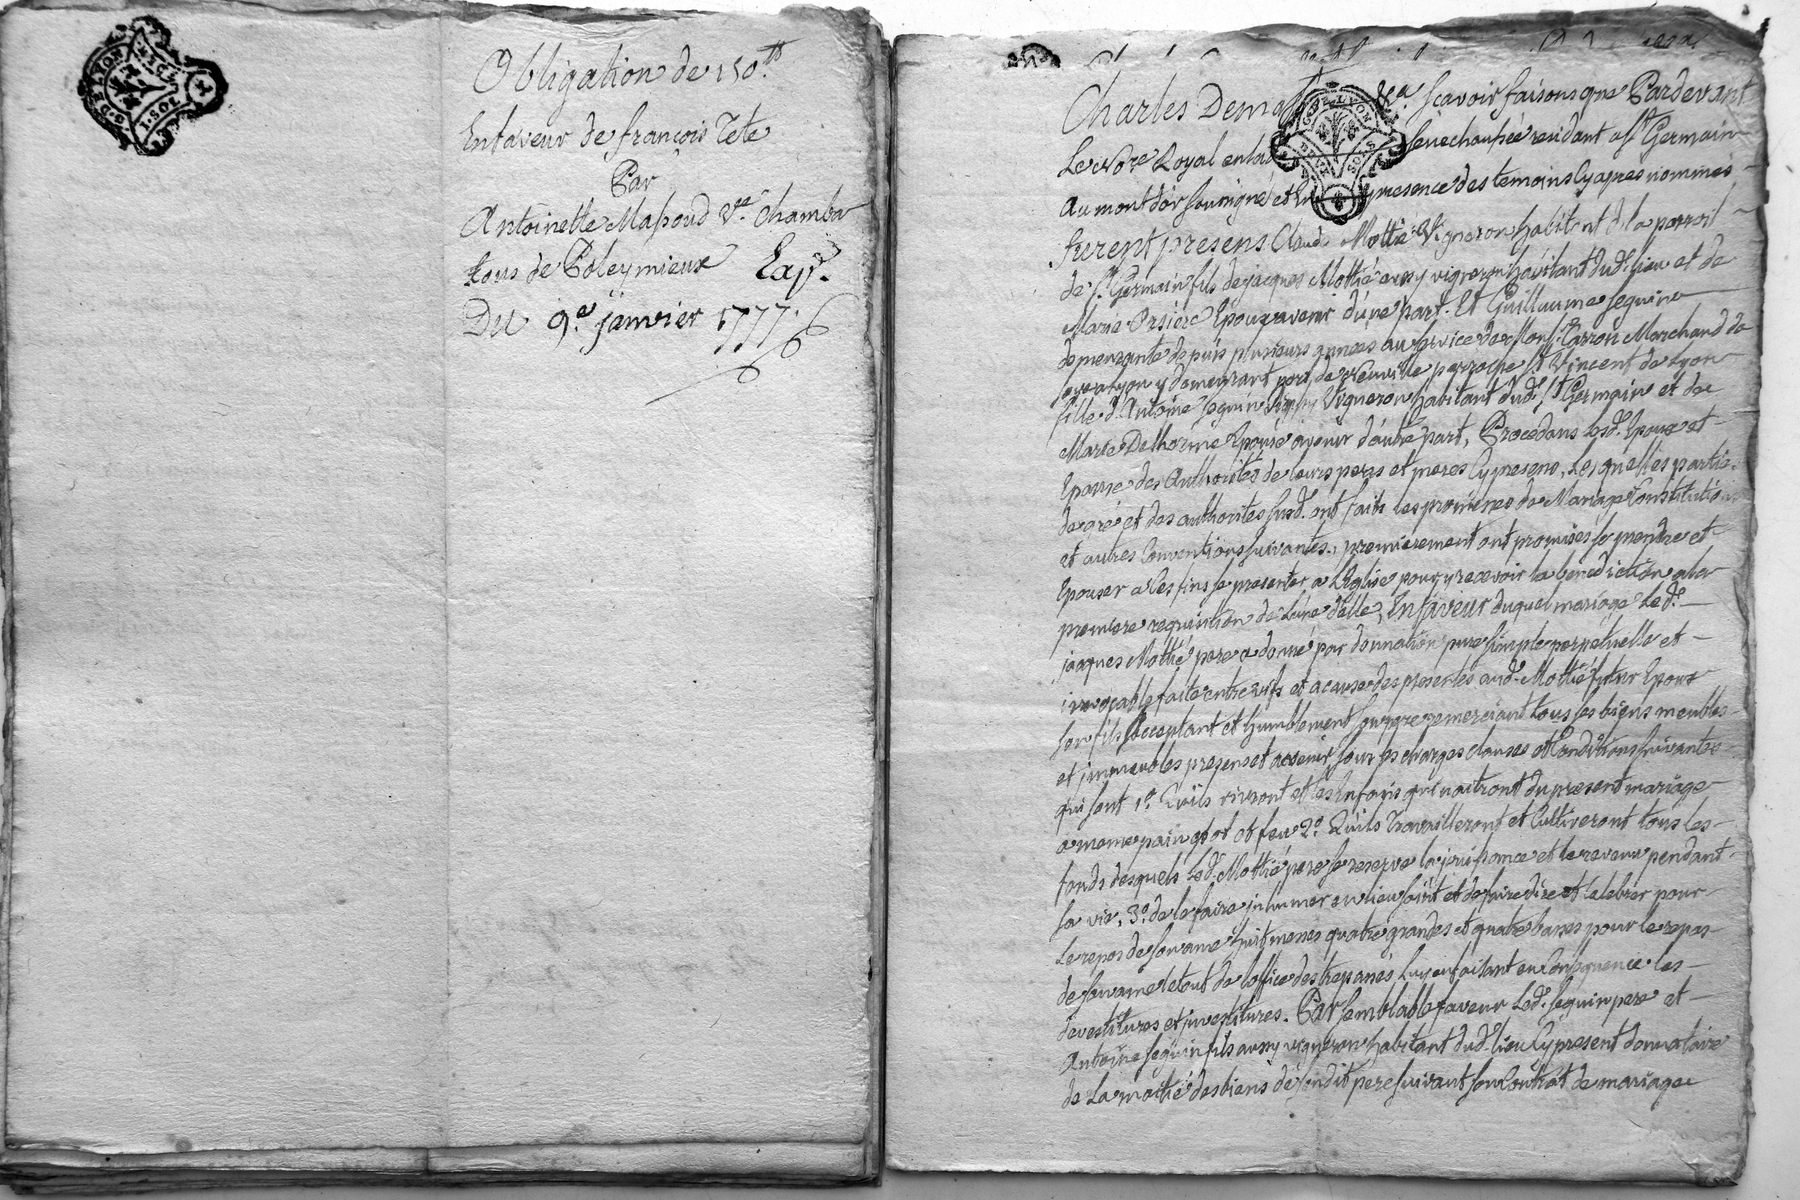 G. DE LYON
1. SOL
Obligation de 150.tt
En faveur de françois Tete
Par
Antoinette Mapoud v.e Chamba
tous de Poleymieux Exp.
Du 9.e janvier 1777.
G. DE LYON
DEUX SOLS
Charles Demas &a scavoir faisons que Pardevant
Le No.re Royal en la senechaussée residant a S.t Germain
au mont d'or soussigné et En presence des temoins Cy apres nommes
furent presens Claude Mottié Vigneron habitant de la parroisse
de S.t Germain fils de jacques Mottié aussy vigneron havitant dud. lieu et de
Marie Orsiere Epoux avenir d'une part. Et Guillaume Seguin
demeurante depuis plusieurs années au service de Mons.r Carron Marchand de
a Lyon y demeurant port de Neuville parroisse S.t Vincent de Lyon
fille d'Antoine Seguin aussy Vigneron habitant dud. S.t Germain et de
Marie Delhorme Epouse avenir d'autre part, Procedans lesd. Epoux et
Epouse des Authorités de leurs peres et meres Cy presens, Lesquelles parties
de gré et des authorités susd. ont faits les promesses de Mariage Constitutions
et autres Conventions suivantes, premierement ont promises se prendre et
Epouser a les fins se presenter a L'Eglise pour y recevoir la benediction a la
premiere requisition de L'une d'elle, En faveur duquel mariage Le d.
jacques Mottié pere a donné par donnation pure simple perpetuelle et
irrevocable faite entre vifs et a cause des presentes aud. Mottié futur Epoux
son fils acceptant et humblement son pere remerciant tous ses biens meubles
et immeubles presens et avenir, sous les charges clauses et Conditions suivantes
qui sont 1.o Quils vivront et les Enfans qui naitront du present mariage
a meme pain pot et feu 2.o Quils Travailleront et Cultiveront tous les
fonds desquels led. Mottié pere se reserve la jouissance et le revenu pendant
sa vie, 3.o de le faire inhumer en lieu saint et de faire dire et Celebrer pour
Le repos de son ame huit messes quatre grandes et quatre basses pour le repos
de son ame le tout de loffice des trepassés Luy en faisant en Consequence les
devestitures et investitures. Par semblable faveur Led. Seguin pere et
Antoine Seguin fils aussy vigneron habitant dud. lieu Cy present donnataire
de La moitié des biens de sondit pere suivant son Contrat de mariage